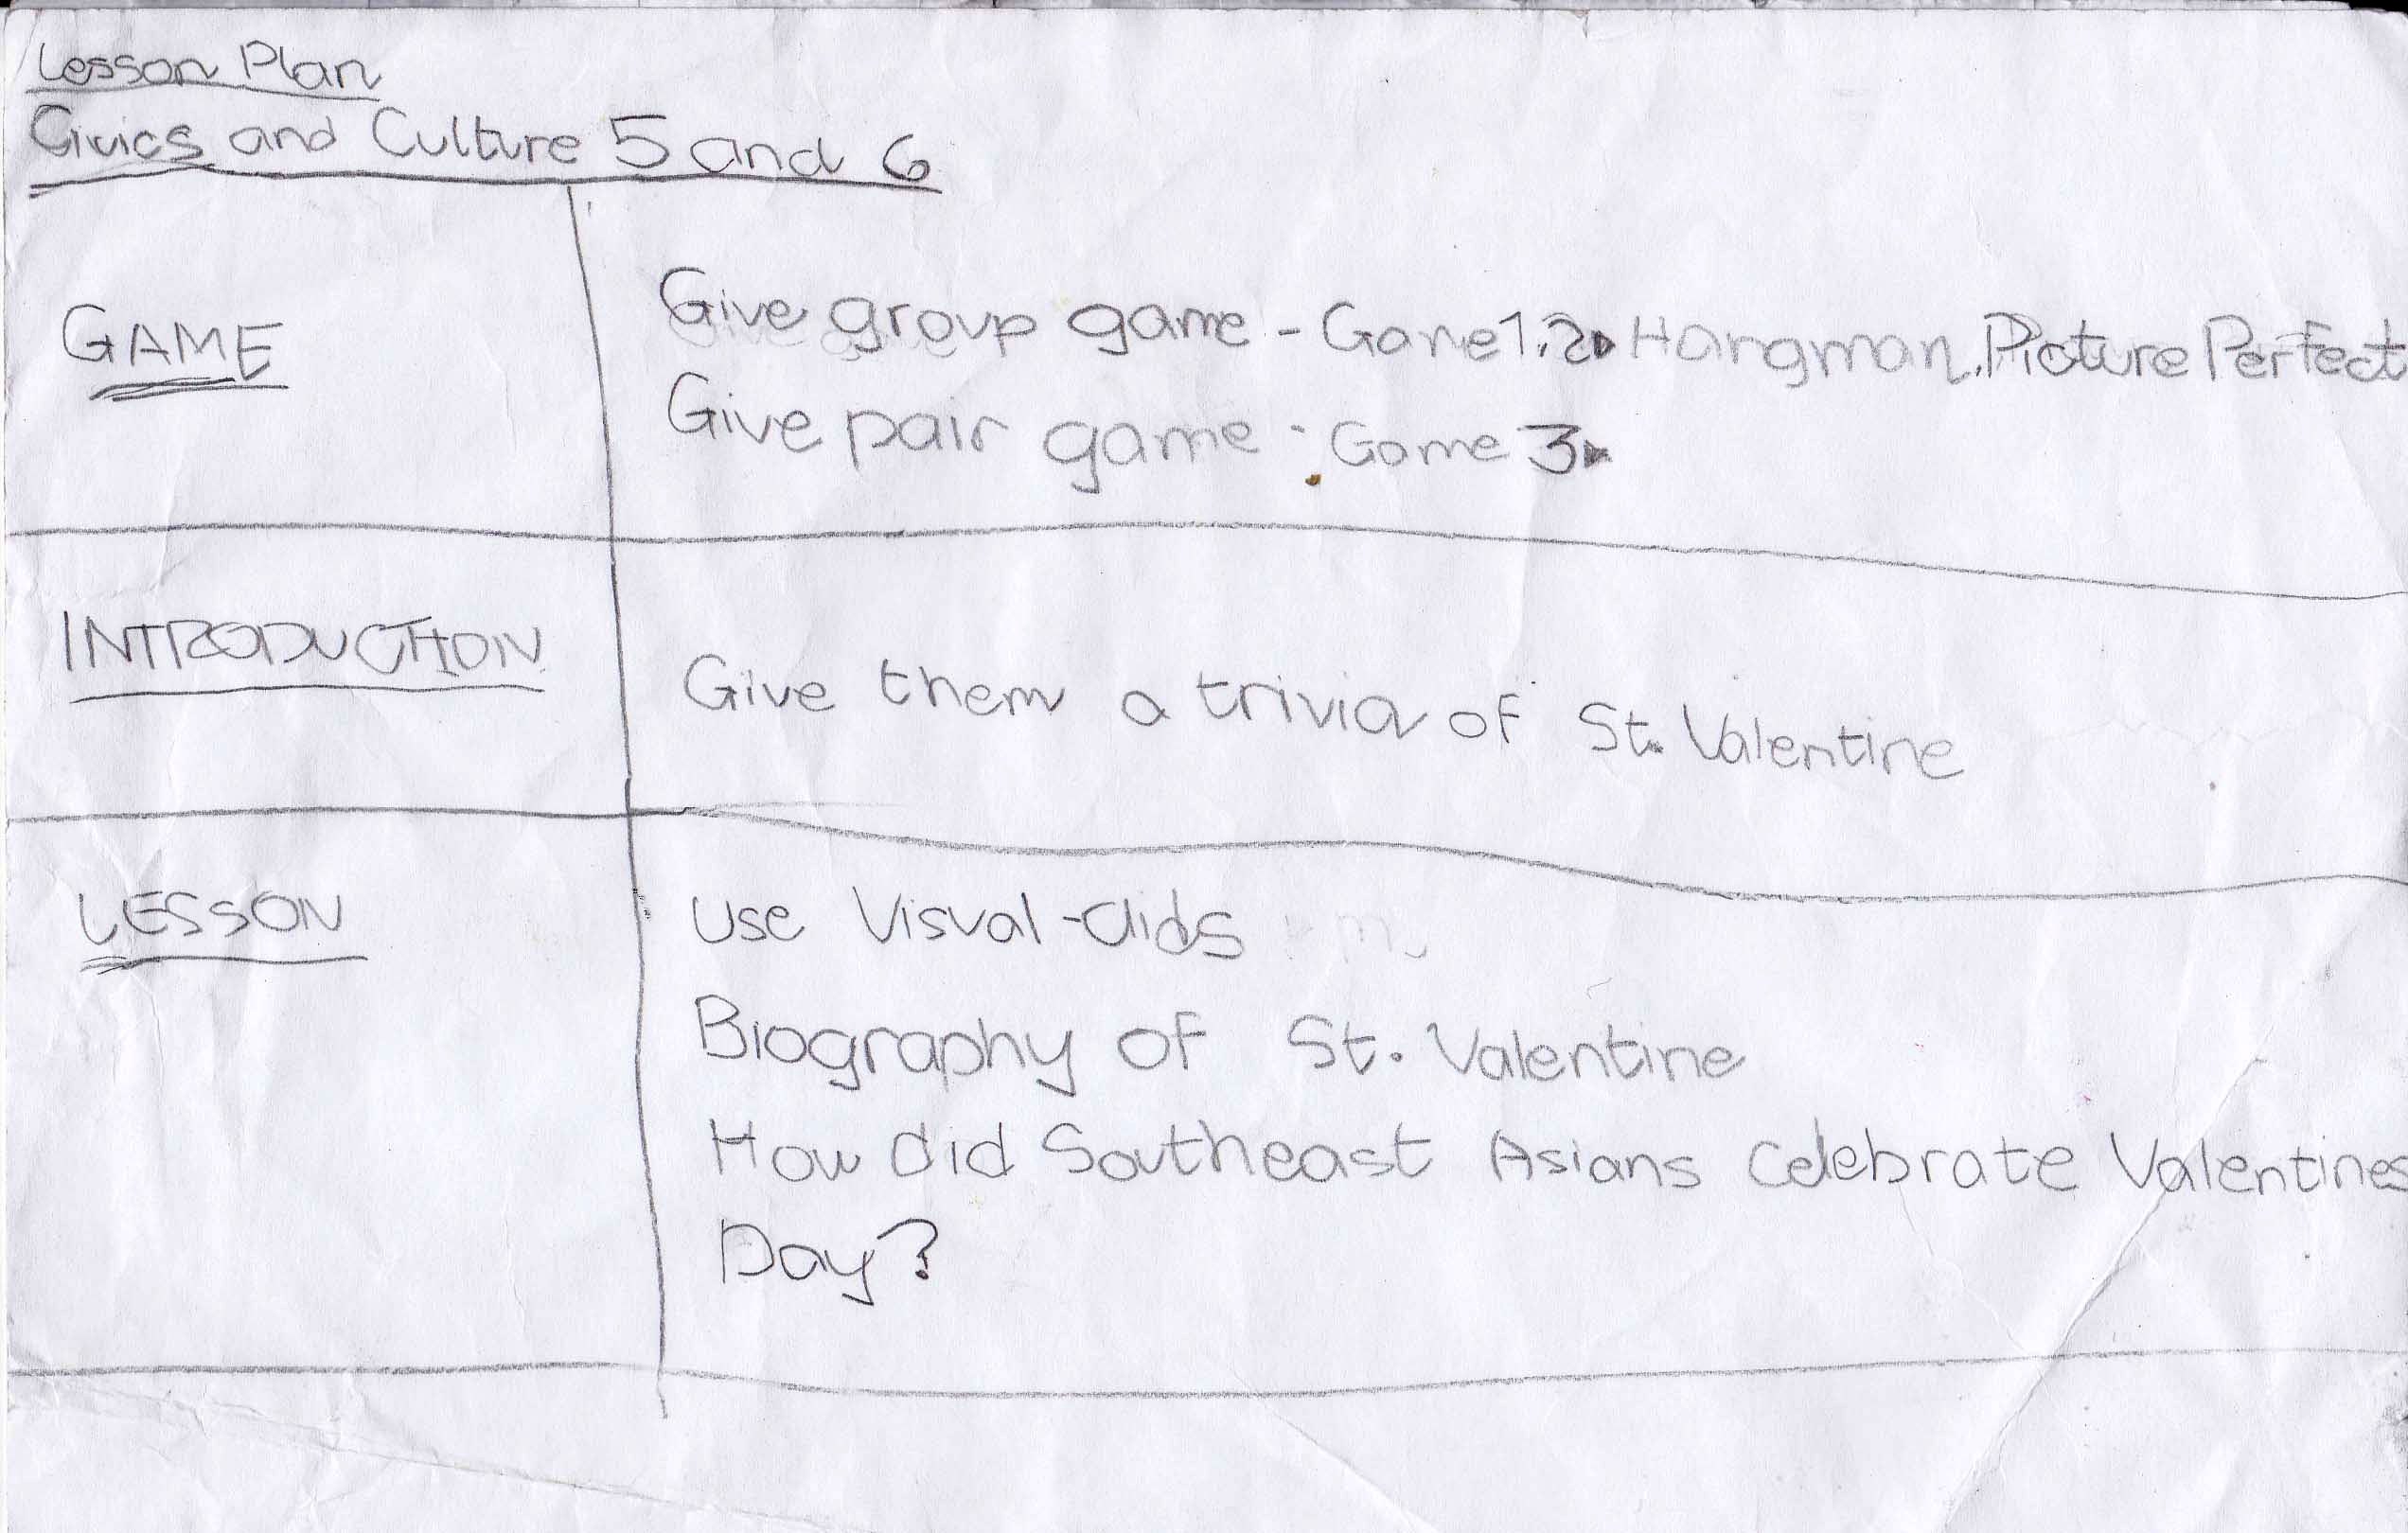 Lesson Plan
Civics and Culture 5 and 6
GAME
Give group game - Game 1,2 Hangman, Picture Perfect
Give pair game - Game 3
INTRODUCTION
Give them a trivia of St. Valentine
LESSON
Use Visual-aids
Biography of St. Valentine
How did Southeast Asians celebrate Valentines
Day?